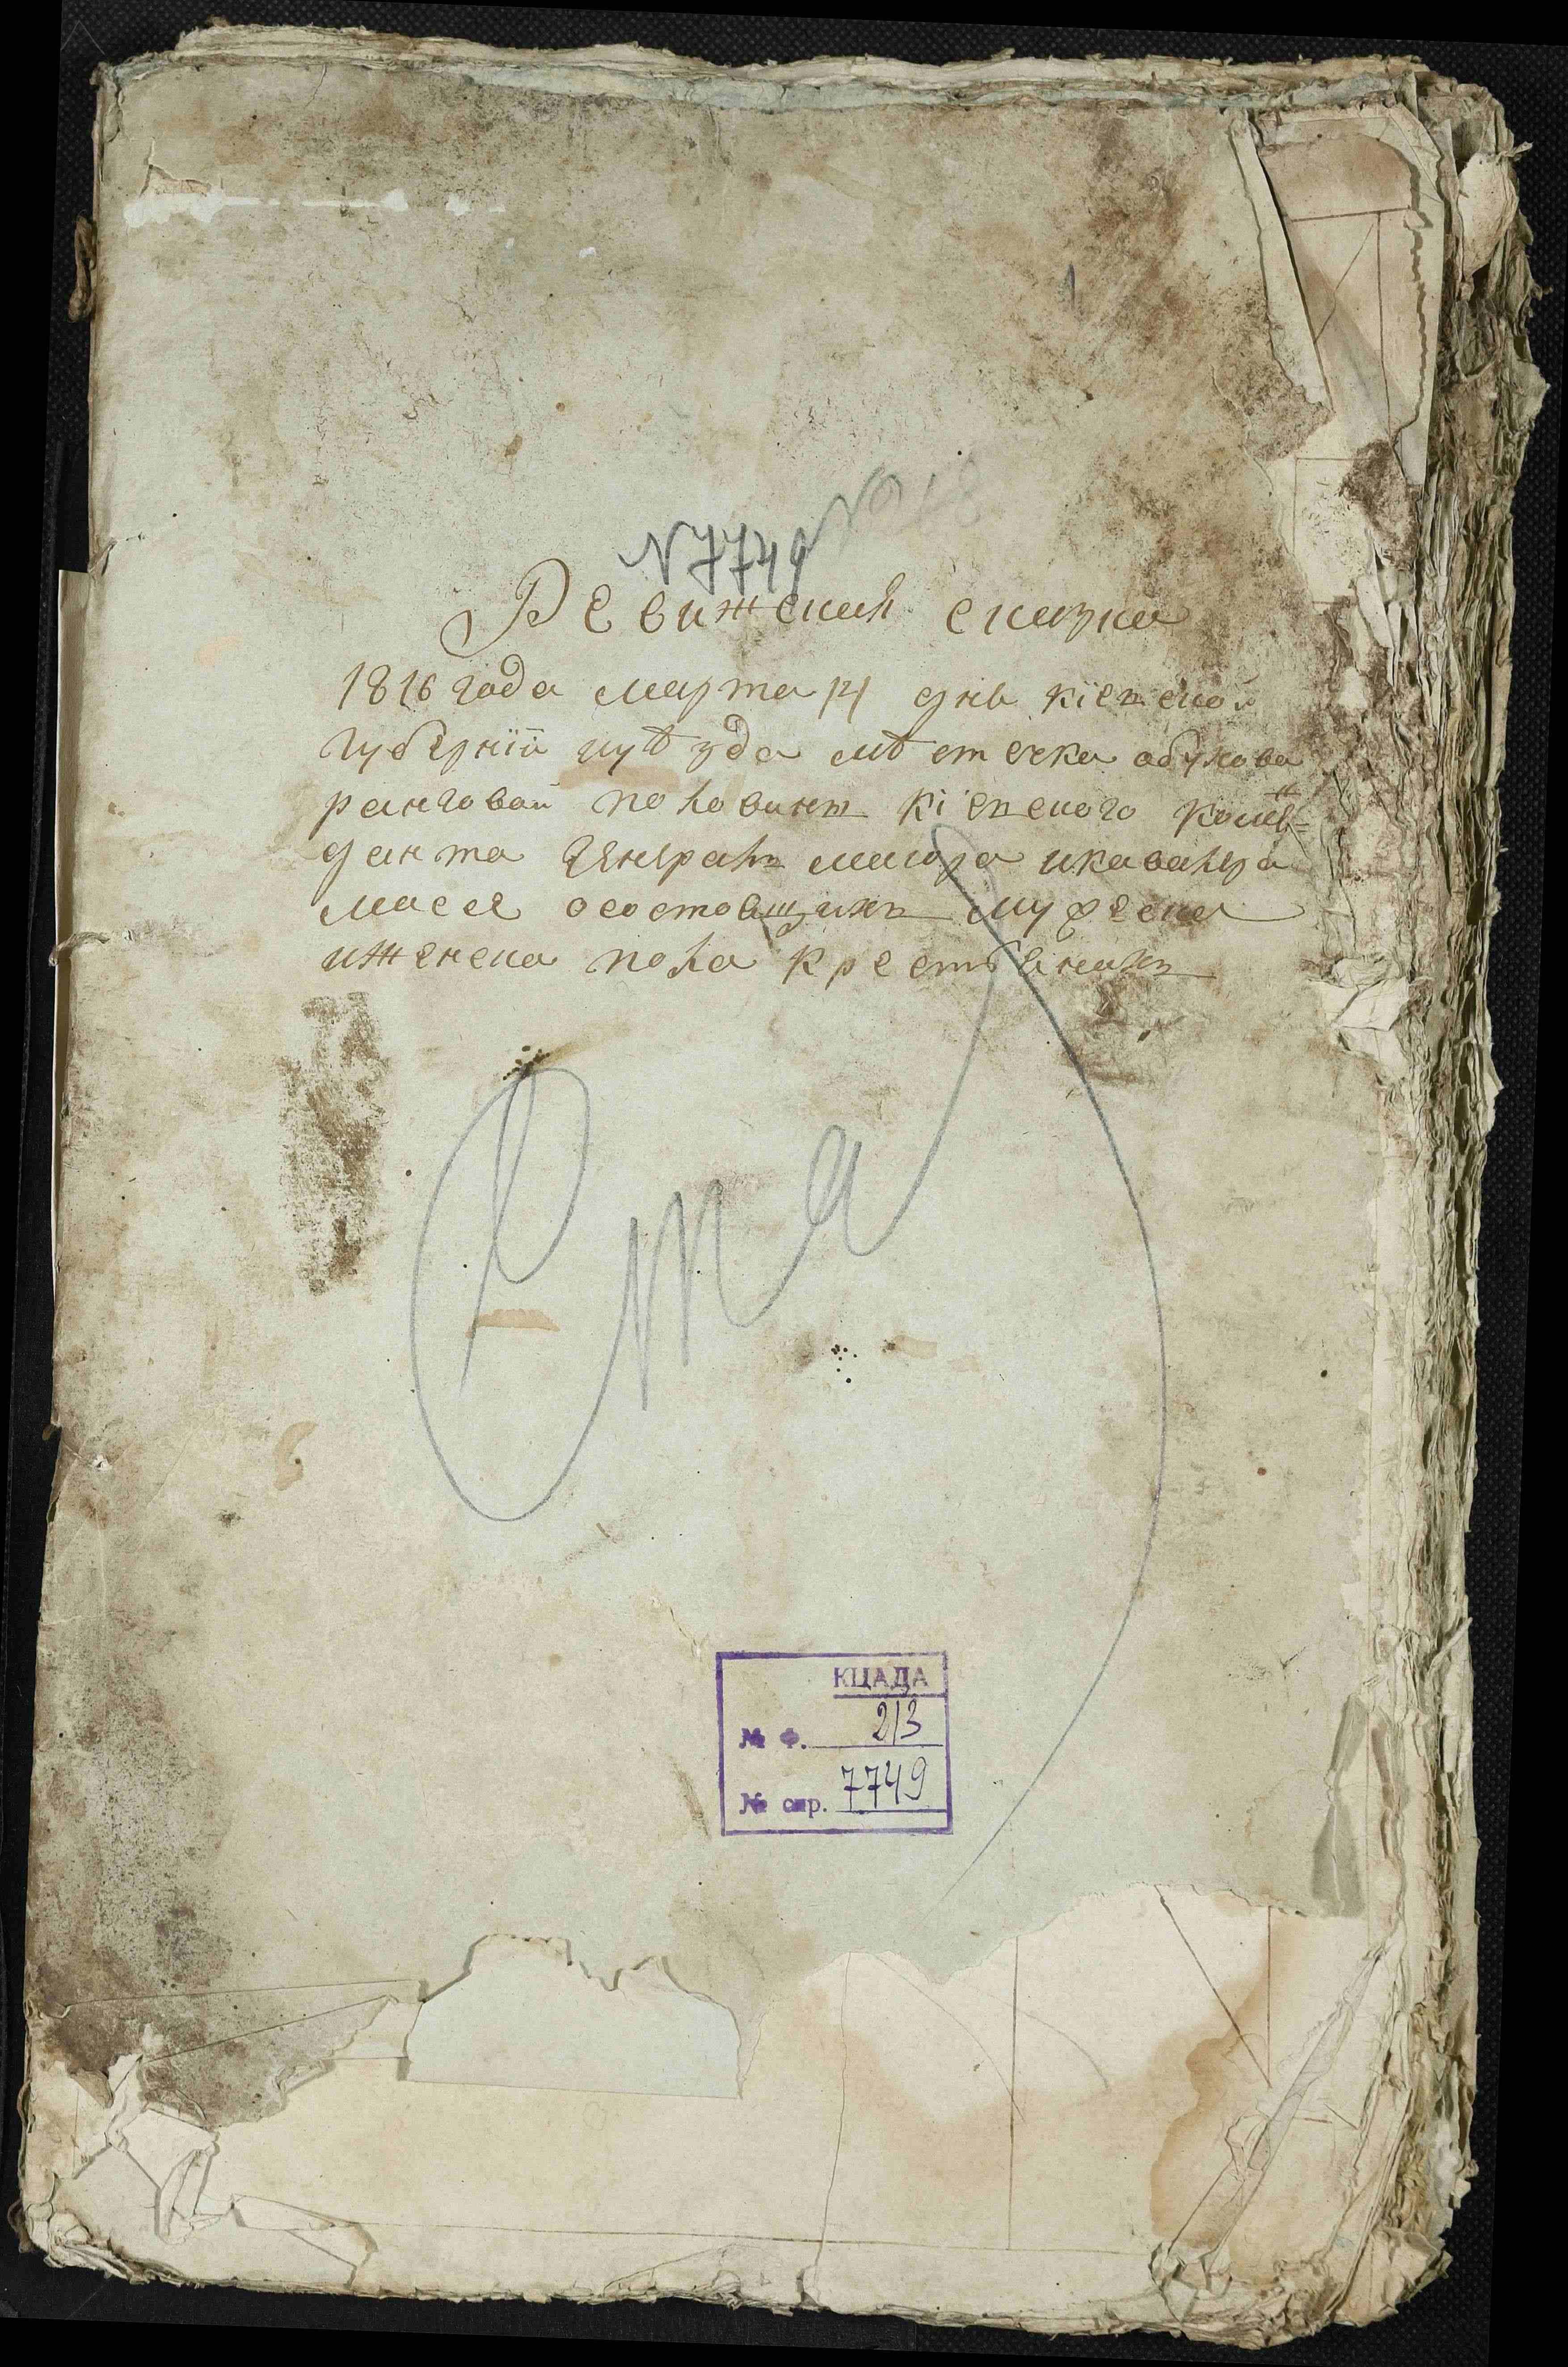 1
№ 18
N 7749
Ревижская сказка
1816 года марта 14 дня кіевской
губернїи иуѣзда мѣстечка обухова
ранговой половинѣ кіевского комен=
данта генералъ маиора икавалера
масся осостоящихъ мужеска
иженска пола крестьянахъ
КЦАДА
№ Ф. 213
№ снр. 7749